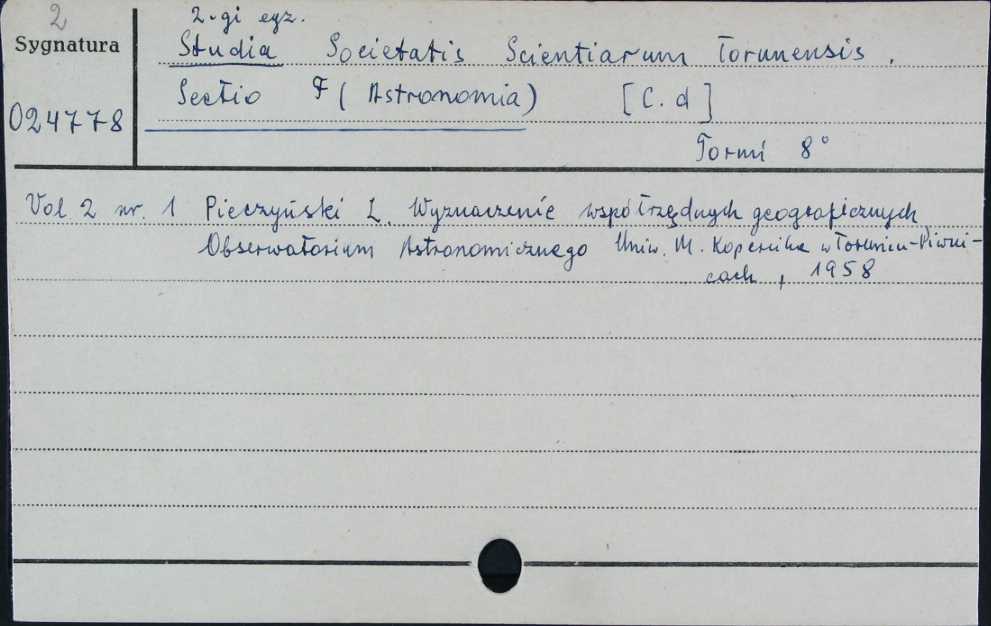 2
2-gi egz.
Sygnatura
Studia Societatis Scientiarum Torunensis.
024778
Sectio F (Astronomia) [C.d]
Toruni 8°
Vol 2 nr. 1 Pieczyński L. Wyznaczenie współrzędnych geograficznych
Obserwatorium Astronomicznego Uniw. M. Kopernika w Toruniu-Piwni-
cach, 1958